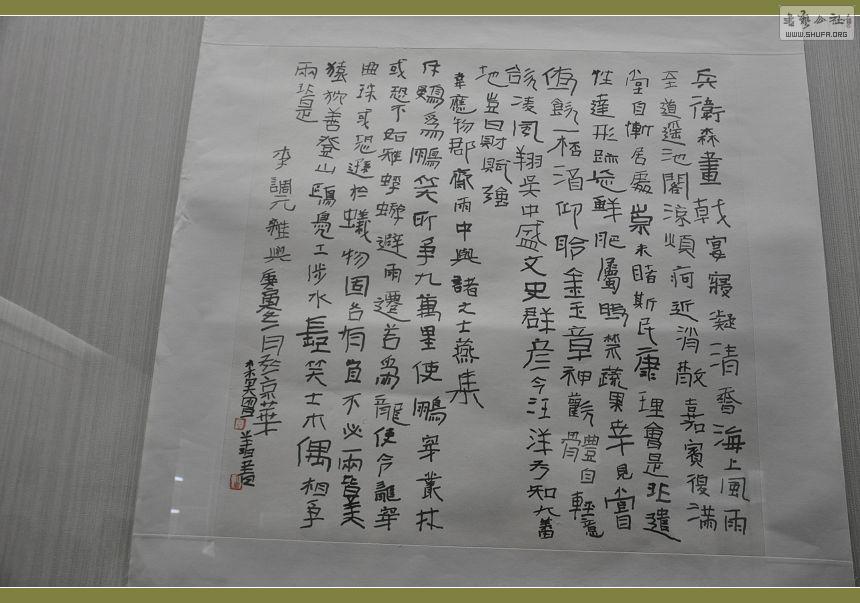 兵衛森畫戟宴寢凝清香海上風雨
至逍遥池閣涼煩痾近消散嘉賓復滿
堂自慚居處崇未睹斯民康理會是非遣
性達形跡忘鮮肥屬時禁蔬果幸見嘗
俯飲一杯酒仰聆金玉章神歡體自輕意
欲凌風翔吳中盛文史群彥今汪洋方知大藩
地豈曰財賦強
韋應物郡齋雨中與諸文士燕集
斥鷃爲鵬笑所爭九萬里使鵬穿叢林
或恐不如雉蜉蝣避雨遷若爲龍使令龍穿
曲珠或恐遜於蟻物固各有宜不必兩皆美
猿狖善登山鷗鳧工涉水長短笑土木偶相爭
兩非是
李調元雜興庚寅二月於京華
書藝公社
WWW.SHUFA.ORG